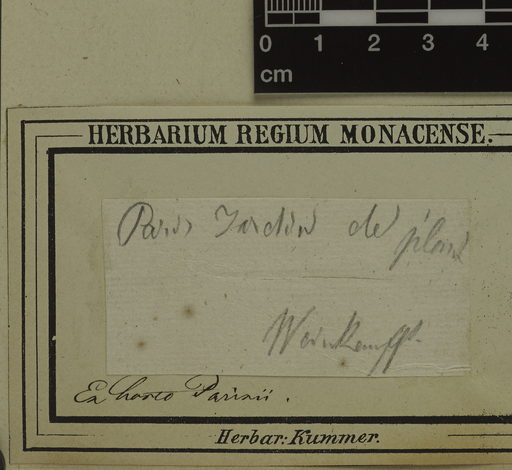 0 1 2 3 4
cm
HERBARIUM REGIUM MONACENSE.
Paris Jardin de plant
Weinkauff
Ex horto Parisii.
Herbar: Kummer.